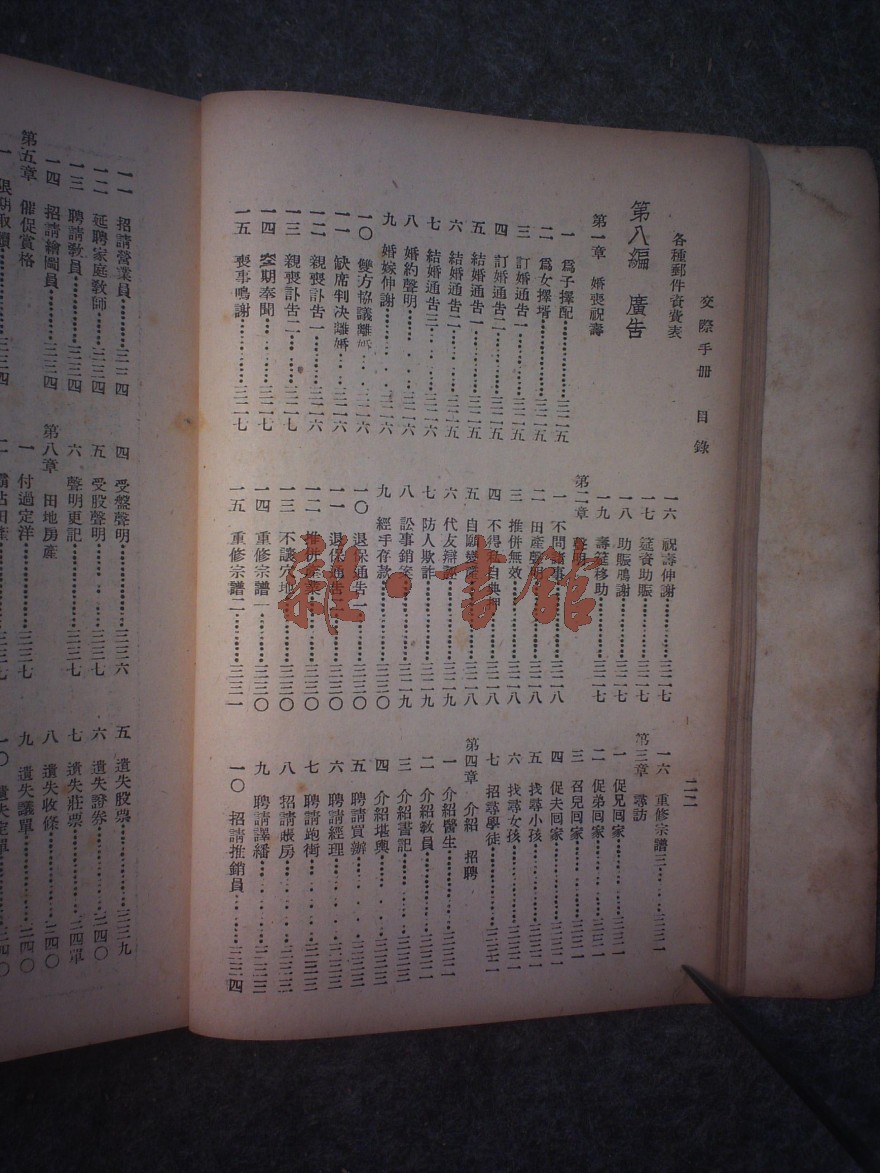 交際手冊　目錄
二二
各種郵件資費表
第八編　廣告
第一章　婚喪祝壽
一　爲子擇配…………三二五
二　爲女擇壻…………三二五
三　訂婚通告一…………三二五
四　訂婚通告二…………三二五
五　結婚通告一…………三二五
六　結婚通告二…………三二五
七　結婚通告三…………三二六
八　婚約聲明…………三二六
九　婚嫁伸謝…………三二六
一〇　雙方協議離婚…………三二六
一一　缺席判决離婚…………三二六
一二　親喪訃告一…………三二六
一三　親喪訃告二…………三二七
一四　空期奉聞…………三二七
一五　喪事鳴謝…………三二七
一六　祝壽伸謝…………三二七
一七　筵資助賑…………三二七
一八　助賑鳴謝…………三二七
一九　壽筵移助…………三二七
第二章　聲明
一　不問諸事…………三二八
二　田產聲明…………三二八
三　推併無效…………三二八
四　不得私自典押…………三二八
五　自願變產…………三二八
六　代友辯誣…………三二九
七　防人欺詐…………三二九
八　訟事銷案…………三二九
九　經手存款…………三三〇
一〇　退保通告一…………三三〇
一一　退保通告二…………三三〇
一二　推併產業…………三三〇
一三　不讓穴地…………三三〇
一四　重修宗譜一…………三三〇
一五　重修宗譜二…………三三一
一六　重修宗譜三…………三三一
第三章　尋訪
一　促兄囘家…………三三一
二　促弟囘家…………三三一
三　召兒囘家…………三三一
四　促夫囘家…………三三一
五　找尋小孩…………三三一
六　找尋女孩…………三三一
七　招尋學徒…………三三二
第四章　介紹　招聘
一　介紹醫生…………三三二
二　介紹教員…………三三二
三　介紹書記…………三三二
四　介紹堪輿…………三三三
五　聘請買辦…………三三三
六　聘請經理…………三三三
七　聘請跑街…………三三三
八　招請賬房…………三三三
九　聘請譯繙…………三三三
一〇　招請推銷員…………三三四
一一　招請營業員…………三三四
一二　延聘家庭教師…………三三四
一三　聘請教員…………三三四
一四　招請繪圖員…………三三四
第五章　催促賞格
一　限期取贖
四　受盤聲明…………三三六
五　受股聲明…………三三七
六　聲明更記…………三三七
第八章　田地房產
一　付過定洋…………三三七
二　霸佔田產…………三三七
五　遺失股票…………三三九
六　遺失證券…………三四〇
七　遺失莊票…………三四〇
八　遺失收條…………三四〇
九　遺失議單…………三四〇
一〇　遺失定單…………三四〇
雜·書館